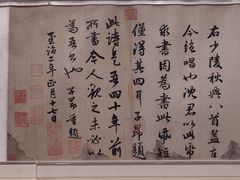 右少陵秋興八首蓋古
今絕唱也沈君以此紙
求書因為書此紙短
僅得其四耳子昂題
此詩是吾四十年前
所書今人觀之未必以
為吾書也子昂重題
至治二年正月十七日